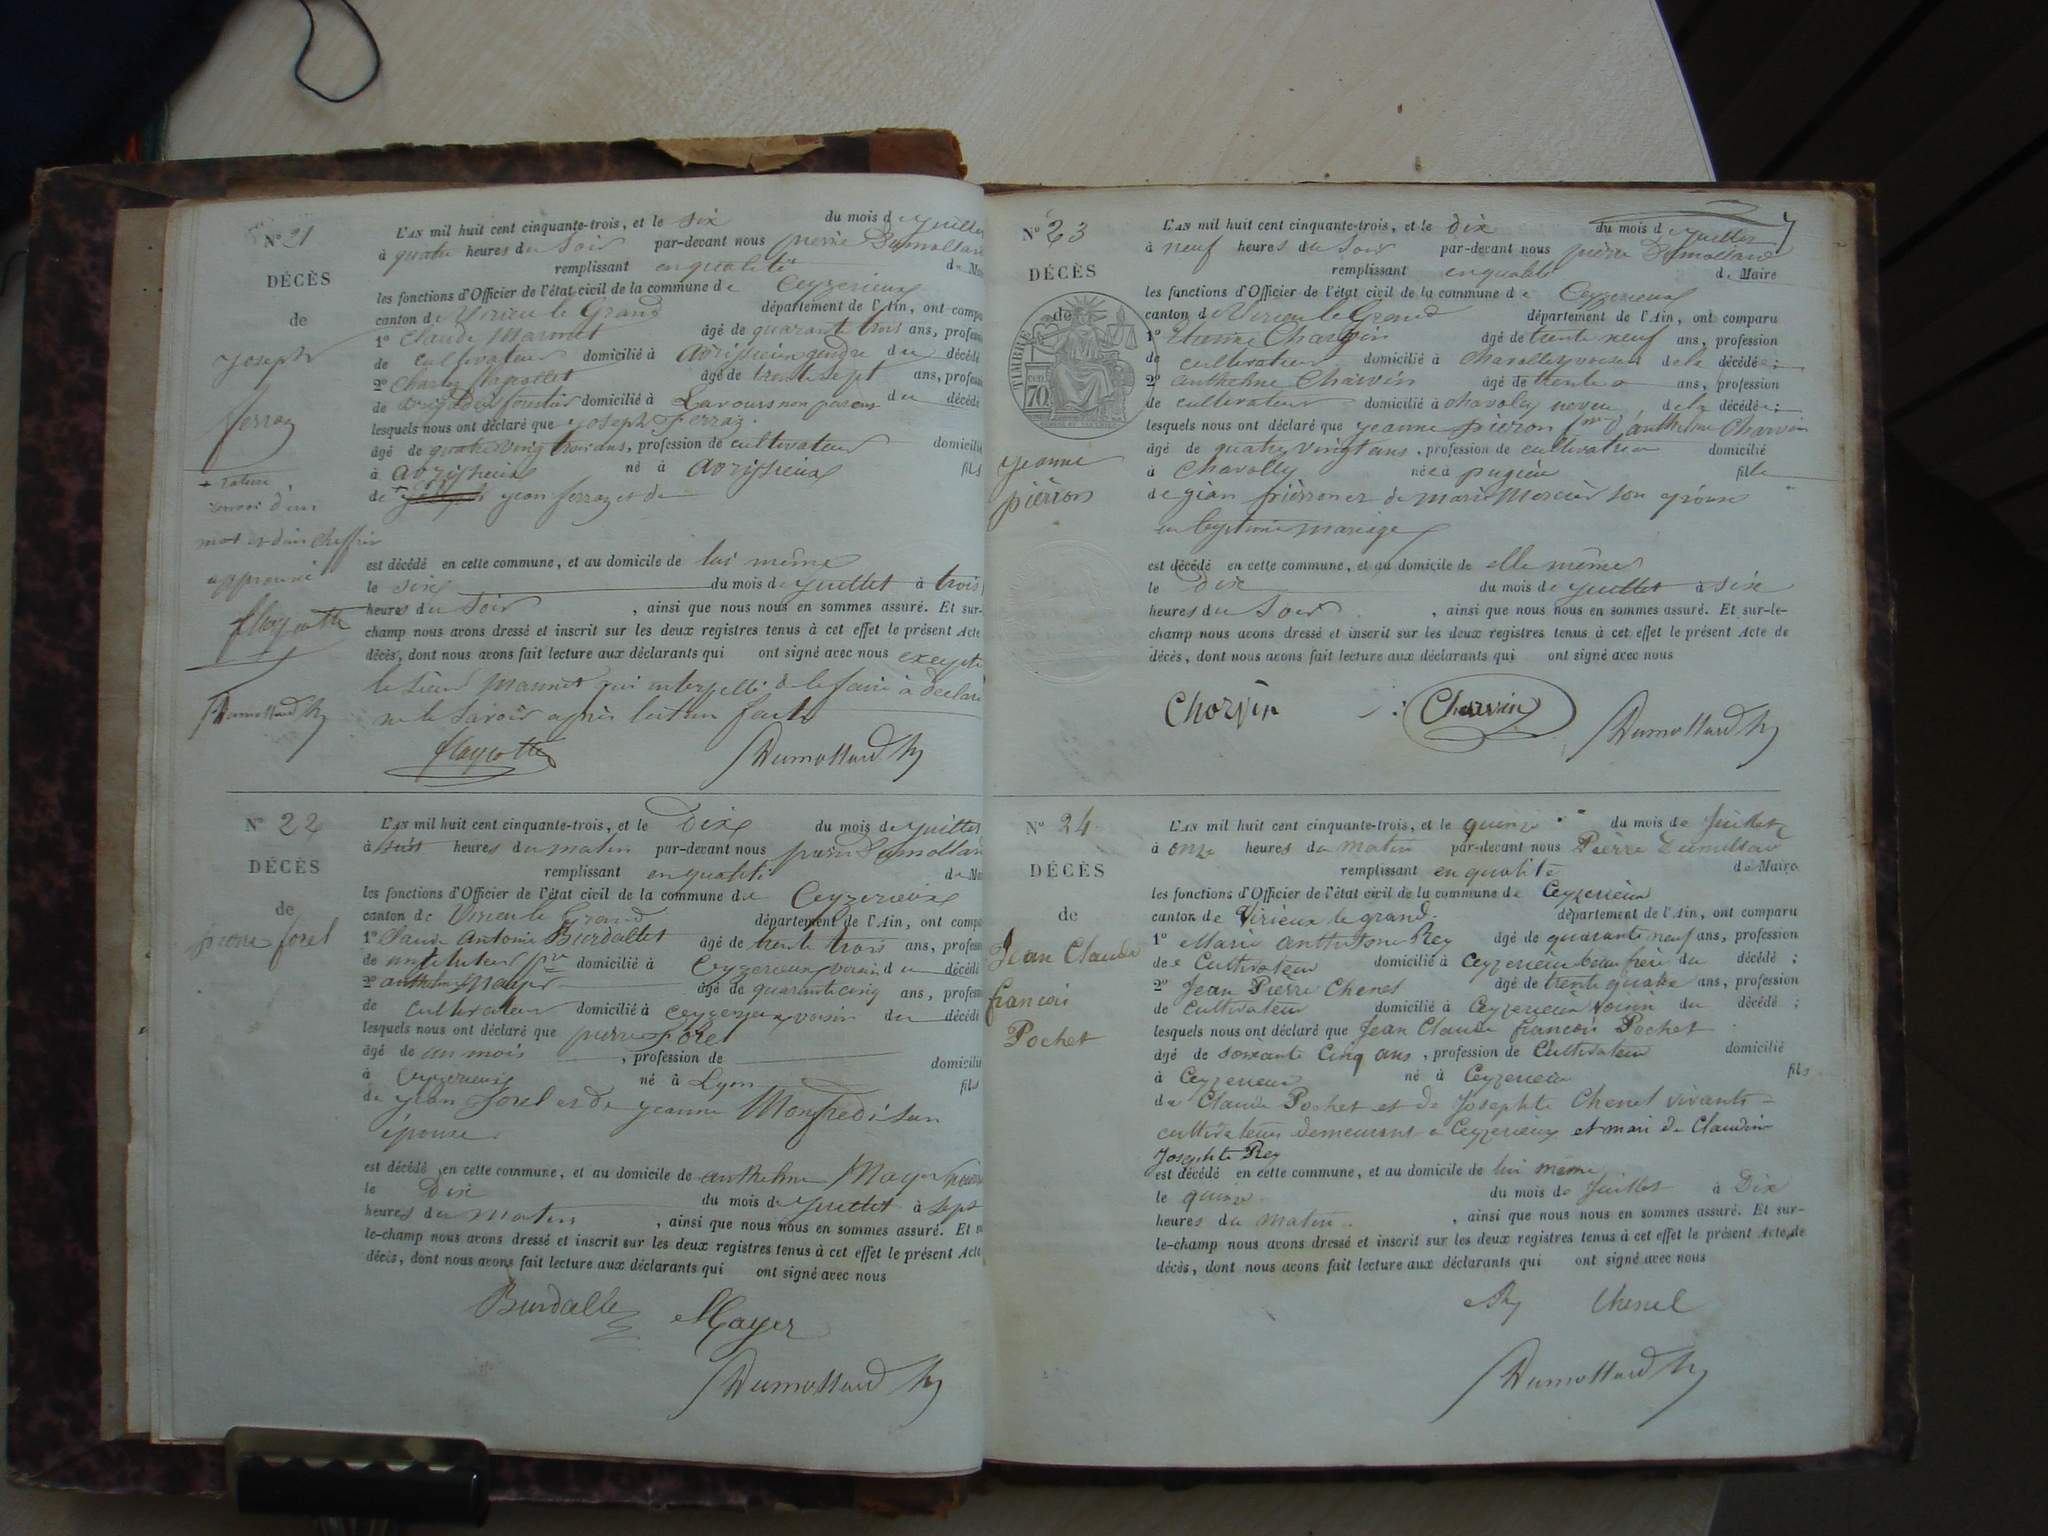 N° 21
DÉCÈS
de
Joseph
ferraz
renvoi d'un
mot
approuvé
Dumollard
L'AN mil huit cent cinquante-trois, et le six du mois de juillet
à quatre heures du Soir par-devant nous pierre Dumollard
remplissant en qualité de Mai
les fonctions d'Officier de l'état civil de la commune de Ceyzerieux
canton de Virieu le Grand département de l'Ain, ont compa
1° Claude âgé de quarante trois ans, profession
de cultivateur domicilié à avrissieux gendre du décédé
2° Charles âgé de trente sept ans, profession
de forestier domicilié à Lavours non parent du décédé
lesquels nous ont déclaré que joseph ferraz
âgé de quatre vingt trois ans, profession de cultivateur domicilié
à avrissieux né à avrissieux fils
de jean ferraz et de
est décédé en cette commune, et au domicile de lui même
le six du mois de juillet à trois
heures du Soir, ainsi que nous nous en sommes assuré. Et sur-
champ nous avons dressé et inscrit sur les deux registres tenus à cet effet le présent Acte
décès, dont nous avons fait lecture aux déclarants qui ont signé avec nous excepté
le sieur qui interpellé de le faire a déclaré
ne le savoir après lecture faite
Dumollard
N° 22
DÉCÈS
de
pierre forel
L'AN mil huit cent cinquante-trois, et le Dix du mois de juillet
à huit heures du matin par-devant nous pierre Dumollard
remplissant en qualité de Ma
les fonctions d'Officier de l'état civil de la commune de Ceyzerieux
canton de Virieu le Grand département de l'Ain, ont compa
1° Claude Antoine Burdallet âgé de trente trois ans, profession
de instituteur domicilié à Ceyzerieux voisin du décédé
2° anthelme Mayer âgé de quarante cinq ans, profession
de cultivateur domicilié à ceyzerieux voisin du décédé
lesquels nous ont déclaré que pierre forel
âgé de un mois, profession de domicilié
à Ceyzerieux né à Lyon fils
de jean forel et de jeanne Monfredi son
épouse
est décédé en cette commune, et au domicile de anthelme Mayer
le Dix du mois de juillet à sept
heures du matin, ainsi que nous nous en sommes assuré. Et s
le-champ nous avons dressé et inscrit sur les deux registres tenus à cet effet le présent Acte
décès, dont nous avons fait lecture aux déclarants qui ont signé avec nous
Burdallet Mayer
Dumollard
7
N° 23
DÉCÈS
de
TIMBRE
70
jeanne
pièrron
L'AN mil huit cent cinquante-trois, et le dix du mois de juillet
à neuf heures du Soir par-devant nous pièrre Dumollard
remplissant en qualité de Maire
les fonctions d'Officier de l'état civil de la commune de Ceyzerieux
canton de Virieu le Grand département de l'Ain, ont comparu
1° Etienne Charvin âgé de trente neuf ans, profession
de cultivateur domicilié à chavolley voisin de la décédée;
2° anthelme Charvin âgé de trente ans, profession
de cultivateur domicilié à chavoley neveu de la décédée;
lesquels nous ont déclaré que jeanne pièrron d'anthelme Charvin
âgé de quatre vingt ans, profession de cultivatrice domicilié
à Chavolley née à pugieu fille
de jean pièrron et de marie Mercier son épouse
en mariage
est décédé en cette commune, et au domicile de elle même
le Dix du mois de juillet à six
heures du Soir, ainsi que nous nous en sommes assuré. Et sur-le-
champ nous avons dressé et inscrit sur les deux registres tenus à cet effet le présent Acte de
décès, dont nous avons fait lecture aux déclarants qui ont signé avec nous
Chorvin Charvin Dumollard
N° 24
DÉCÈS
de
Jean Claude
francois
Pochet
L'AN mil huit cent cinquante-trois, et le quinze du mois de Juillet
à onze heures du matin par-devant nous Pièrre Dumollard
remplissant en qualité de Maire
les fonctions d'Officier de l'état civil de la commune de Ceyzerieu
canton de Virieux le grand. département de l'Ain, ont comparu
1° Marie Rey âgé de quarante neuf ans, profession
de Cultivateur domicilié à Ceyzerieu beau frere du décédé;
2° Jean Pierre Chenel âgé de trente quatre ans, profession
de Cultivateur domicilié à Ceyzerieu voisin du décédé;
lesquels nous ont déclaré que Jean Claude francois Pochet
âgé de soixante Cinq ans, profession de Cultivateur domicilié
à Ceyzerieu né à Ceyzerieu fils
de Claude Pochet et de Josephte Chenel vivants
cultivateurs demeurant à Ceyzerieux et mari de Claudine
Josephte Rey
est décédé en cette commune, et au domicile de lui même
le quinze du mois de Juillet à Dix
heures du matin, ainsi que nous nous en sommes assuré. Et sur-
le-champ nous avons dressé et inscrit sur les deux registres tenus à cet effet le présent Acte de
décès, dont nous avons fait lecture aux déclarants qui ont signé avec nous
Rey Chenel
Dumollard